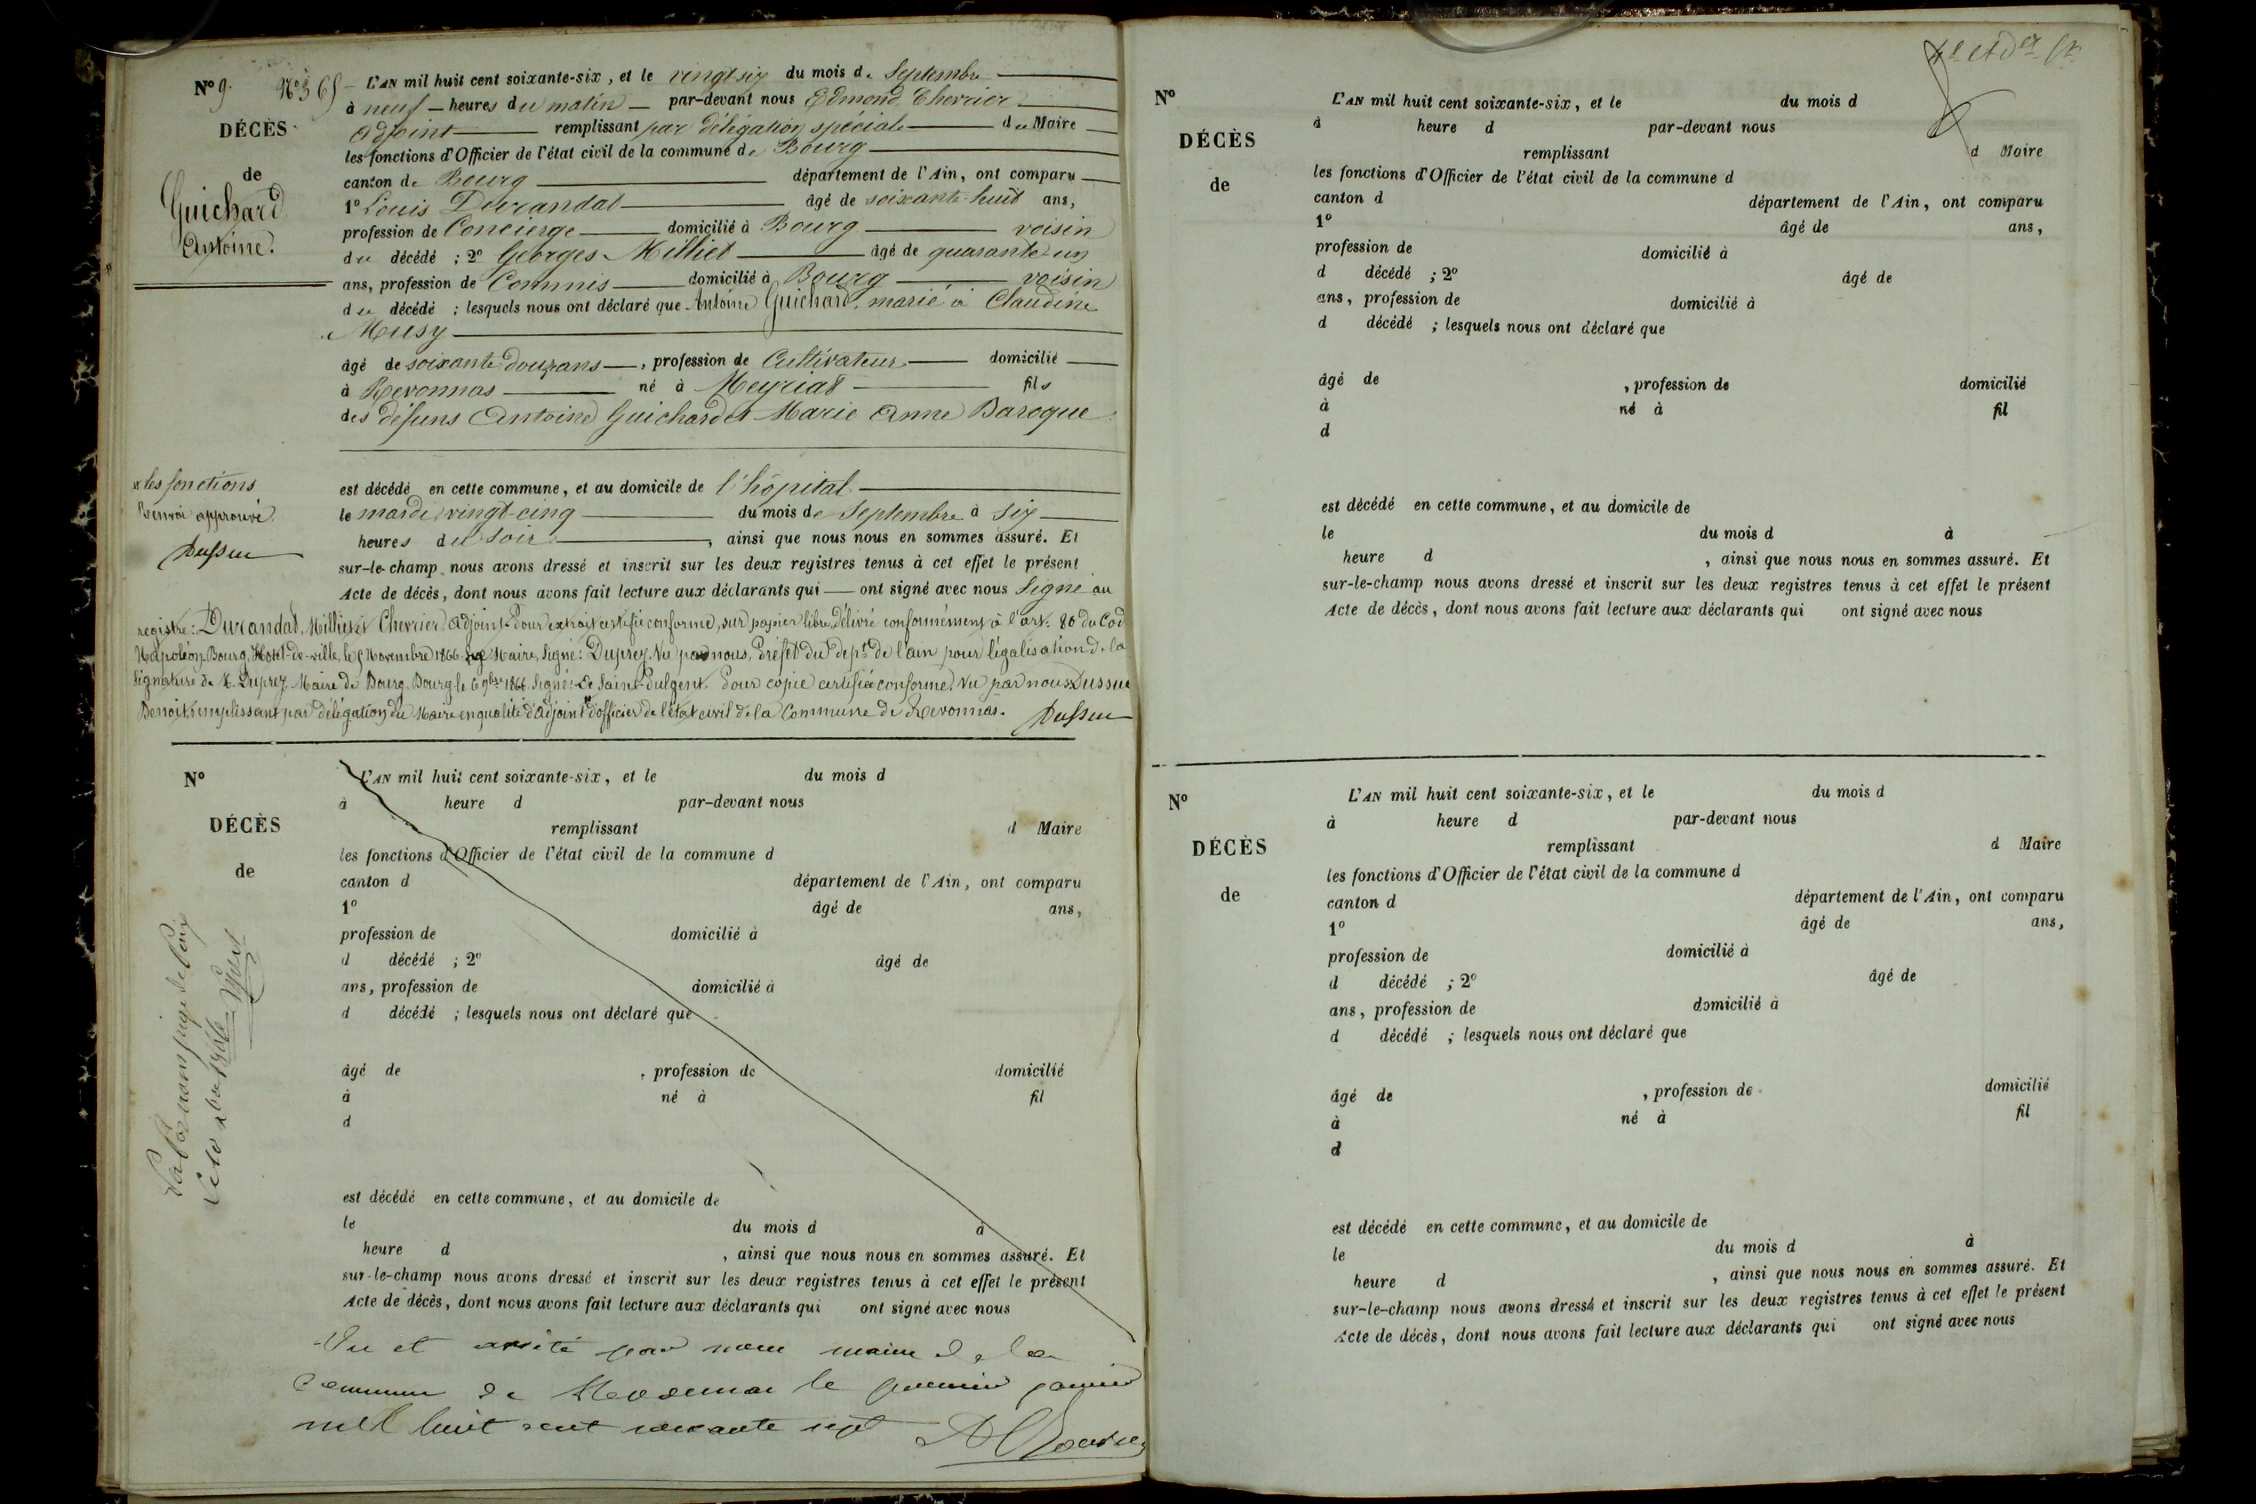 N° 9. N° 365 L'AN mil huit cent soixante-six, et le vingt six du mois de Septembre
à neuf heures du matin par-devant nous Edmond Chevrier
DÉCÈS
adjoint remplissant par délégation spéciale du Maire
les fonctions d'Officier de l'état civil de la commune de Bourg
de
canton de Bourg département de l'Ain, ont comparu
Guichard
Antoine.
1° Louis Durandal âgé de soixante-huit ans,
profession de Concierge domicilié à Bourg voisin
du décédé ; 2° Georges Milliet âgé de quarante-un
ans, profession de Commis domicilié à Bourg voisin
du décédé ; lesquels nous ont déclaré que Antoine Guichard, marié à Claudine
Musy
âgé de soixante douze ans, profession de Cultivateur domicilié
à Revonnas né à Meyriat fils
des défuns Antoine Guichard et Marie Anne Baroque
x les fonctions
Renvoi approuvé.
Dussue
est décédé en cette commune, et au domicile de l'hôpital
le mardi vingt-cinq du mois de Septembre à six
heures du soir, ainsi que nous nous en sommes assuré. Et
sur-le-champ nous avons dressé et inscrit sur les deux registres tenus à cet effet le présent
Acte de décès, dont nous avons fait lecture aux déclarants qui ont signé avec nous Signé au
registre : Durandal, Milliet et Chevrier adjoint. Pour extrait certifié conforme, sur papier libre, délivré conformément à l'art. 80 du Cod
Napoléon, Bourg, Hôtel-de-ville, le 5 Novembre 1866. Maire, Signé : Duprez. Vu par nous, Préfet du dépt. de l'ain pour légalisation de la
Signature de M. Duprez, Maire de Bourg. Bourg le 6 9bre 1866. Signé : De Saint-Pulgent. Pour copie certifiée conforme. Vu par nous Dussue
Benoit remplissant par délégation du Maire en qualité d'adjoint x d'officier de l'état civil de la Commune de Revonnas. Dussue
N°
DÉCÈS
de
L'AN mil huit cent soixante-six, et le du mois d
à heure d par-devant nous
remplissant d Maire
les fonctions d'Officier de l'état civil de la commune d
canton d département de l'Ain, ont comparu
1° âgé de ans,
profession de domicilié à
d décédé ; 2° âgé de
ans, profession de domicilié à
d décédé ; lesquels nous ont déclaré que
âgé de , profession de domicilié
à né à fil
d
est décédé en cette commune, et au domicile de
le du mois d à
heure d , ainsi que nous nous en sommes assuré. Et
sur-le-champ nous avons dressé et inscrit sur les deux registres tenus à cet effet le présent
Acte de décès, dont nous avons fait lecture aux déclarants qui ont signé avec nous
Vu et arrêté par nous maire de la
commune de Revonnas le premier janvier
mil huit cent soixante sept
N°
DÉCÈS
de
L'AN mil huit cent soixante-six, et le du mois d
à heure d par-devant nous
remplissant d Maire
les fonctions d'Officier de l'état civil de la commune d
canton d département de l'Ain, ont comparu
1° âgé de ans,
profession de domicilié à
d décédé ; 2° âgé de
ans, profession de domicilié à
d décédé ; lesquels nous ont déclaré que
âgé de , profession de domicilié
à né à fil
d
est décédé en cette commune, et au domicile de
le du mois d à
heure d , ainsi que nous nous en sommes assuré. Et
sur-le-champ nous avons dressé et inscrit sur les deux registres tenus à cet effet le présent
Acte de décès, dont nous avons fait lecture aux déclarants qui ont signé avec nous
N°
DÉCÈS
de
L'AN mil huit cent soixante-six, et le du mois d
à heure d par-devant nous
remplissant d Maire
les fonctions d'Officier de l'état civil de la commune d
canton d département de l'Ain, ont comparu
1° âgé de ans,
profession de domicilié à
d décédé ; 2° âgé de
ans, profession de domicilié à
d décédé ; lesquels nous ont déclaré que
âgé de , profession de domicilié
à né à fil
d
est décédé en cette commune, et au domicile de
le du mois d à
heure d , ainsi que nous nous en sommes assuré. Et
sur-le-champ nous avons dressé et inscrit sur les deux registres tenus à cet effet le présent
Acte de décès, dont nous avons fait lecture aux déclarants qui ont signé avec nous